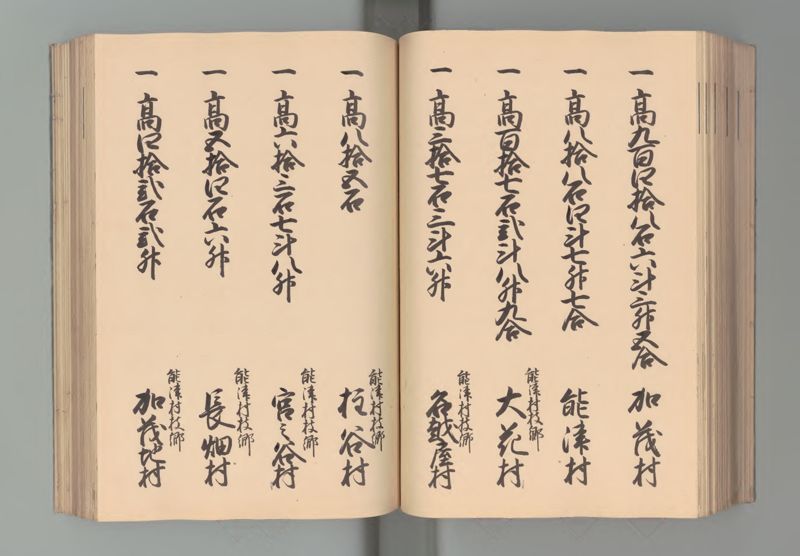 一 高九百四拾八石六斗三升五合 加茂村
一 高八拾八石四斗七升七合 能津村
一 高百拾七石弐斗八升九合 能津村枝郷 大花村
一 高三拾七石三斗六升 能津村枝郷 名越屋村
一 高八拾五石 能津村枝郷 柱谷村
一 高六拾三石七斗八升 能津村枝郷 宮之谷村
一 高五拾四石六升 能津村枝郷 長畑村
一 高四拾弐石弐升 能津村枝郷 加茂地村